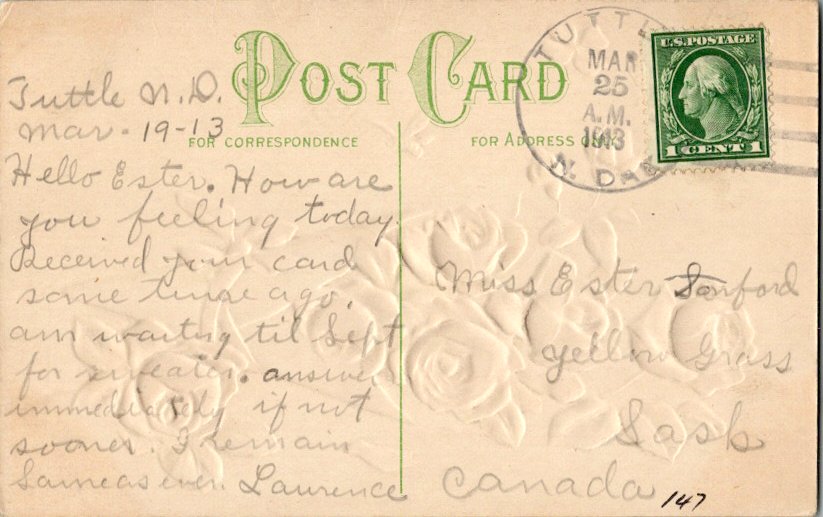 POST CARD
FOR CORRESPONDENCE
FOR ADDRESS ONLY
TUTTLE
MAR
25
A.M.
1913
N. DAK
U.S. POSTAGE
1 CENT 1
Tuttle N.D.
Mar. 19-13
Hello Ester. How are
you feeling today.
Received your card
some time ago.
am waiting til Sept
for sweater. answer
immediately if not
sooner. I remain
Same as ever. Laurence
Miss Ester Sanford
Yellow Grass
Sask
Canada
147